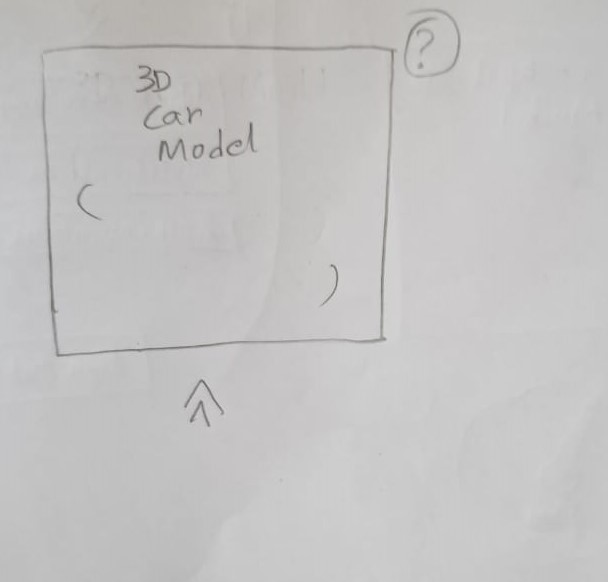 ?
3D
Car
Model
(
)